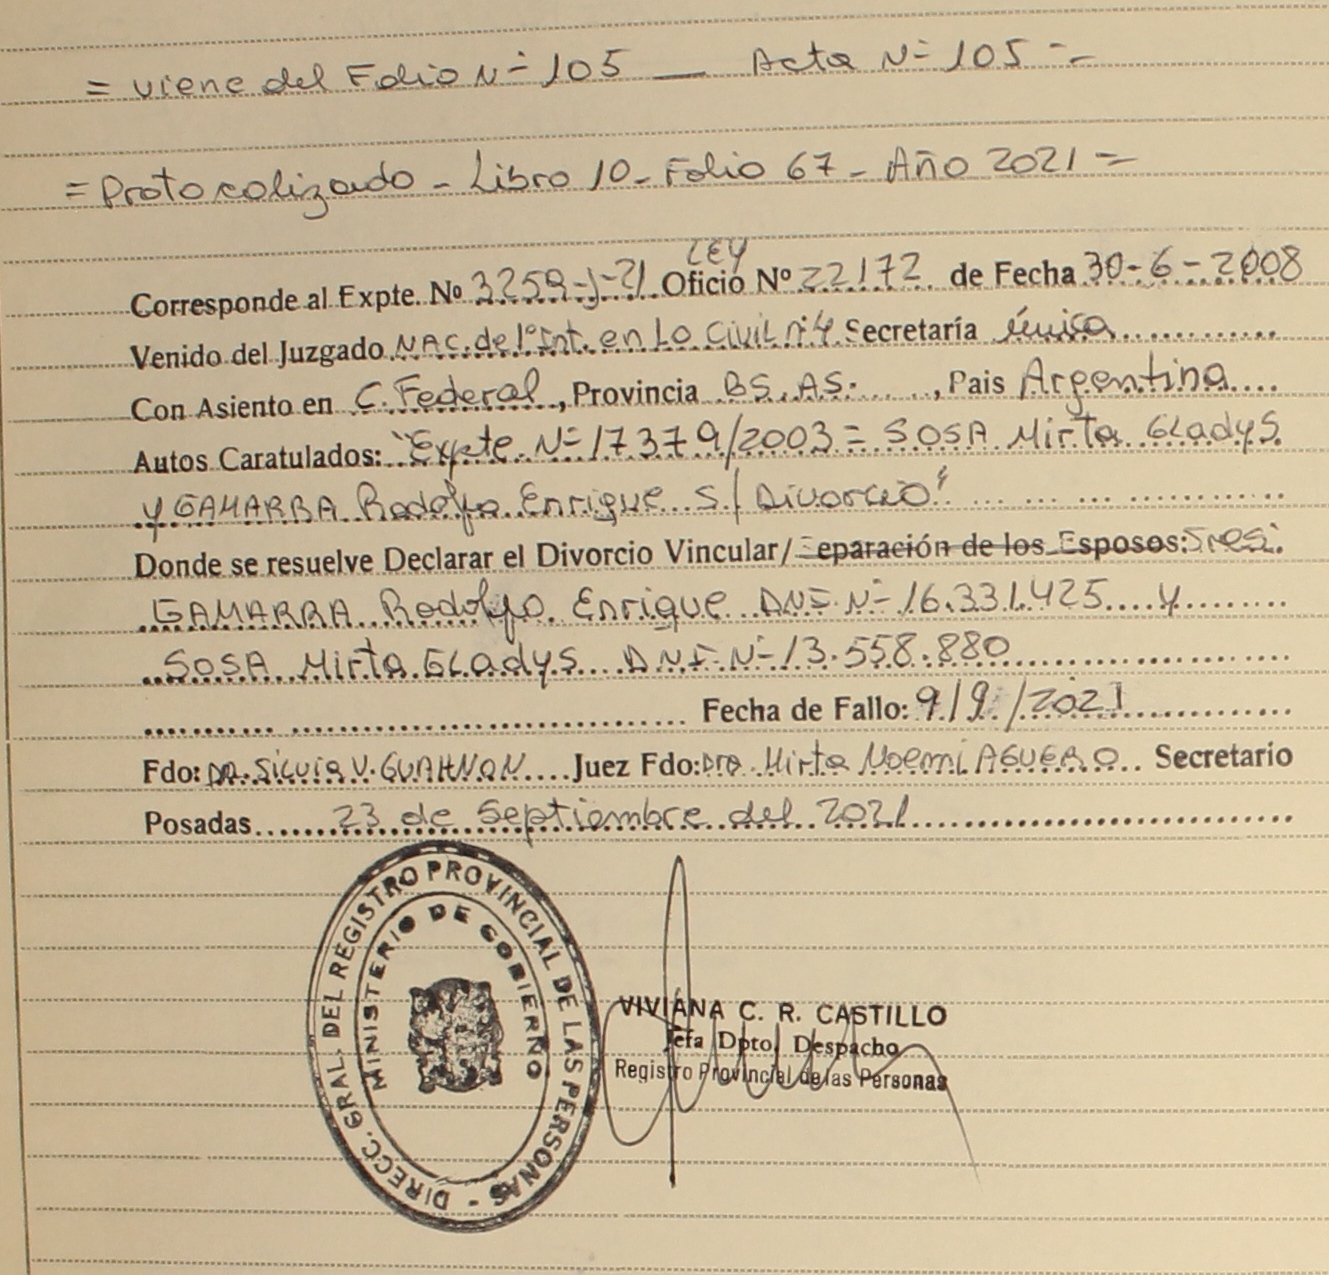 = viene del Folio Nº 105 — Acta Nº 105 =
= Protocolizado - Libro 10 - Folio 67 - Año 2021 =
LEY
Corresponde al Expte. Nº 3259-J-21 Oficio Nº 22172 de Fecha 30-6-2008
Venido del Juzgado NAC. de 1º Int. en Lo Civil nº 4 Secretaría única
Con Asiento en C. Federal, Provincia BS. AS., Pais Argentina
Autos Caratulados: "Expte Nº 17379/2003 = SOSA Mirta Gladys
y GAMARRA Rodolfo Enrique S/ Divorcio"
Donde se resuelve Declarar el Divorcio Vincular/Separación de los Esposos: Sres:
GAMARRA Rodolfo Enrique DNI Nº 16.331.425 y
SOSA Mirta Gladys DNI Nº 13.558.880
Fecha de Fallo: 9/9/2021
Fdo: DRA. Silvia V. GUAHNON Juez Fdo: Dra Mirta Noemi AGUERO Secretario
Posadas 23 de Septiembre del 2021
DIRECC. GRAL. DEL REGISTRO PROVINCIAL DE LAS PERSONAS -
MINISTERIO DE GOBIERNO
VIVIANA C. R. CASTILLO
Jefa Dpto. Despacho
Registro Provincial de las Personas